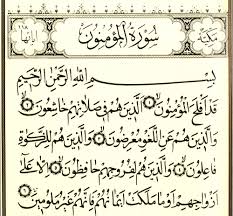 سُورَةُ الْمُؤْمِنُونَ
بِسْمِ اللَّهِ الرَّحْمٰنِ الرَّحِيمِ
قَدْ أَفْلَحَ الْمُؤْمِنُونَ الَّذِينَ هُمْ فِي صَلَاتِهِمْ خَاشِعُونَ
وَالَّذِينَ هُمْ عَنِ اللَّغْوِ مُعْرِضُونَ وَالَّذِينَ هُمْ لِلزَّكٰوةِ
فَاعِلُونَ وَالَّذِينَ هُمْ لِفُرُوجِهِمْ حَافِظُونَ إِلَّا عَلَى
أَزْوَاجِهِمْ أَوْ مَا مَلَكَتْ أَيْمَانُهُمْ فَإِنَّهُمْ غَيْرُ مَلُومِينَ